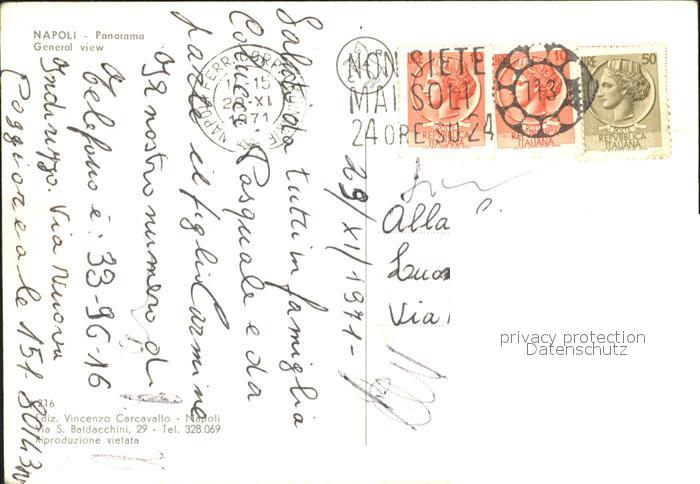 NAPOLI - Panorama
General view
Saluti da tutti in famiglia
Colucci Pasquale e da
parte il figlio Carmine
il nostro numero di
telefono è: 33-96-16
Indirizzo. Via Nuova
Poggioreale 151 80143
29/XI/1971-
NAPOLI FERR. CORR.
15
XI
1971
NON SIETE
MAI SOLI
24 ORE SU 24
113
LIRE 10
REPVBBLICA
ITALIANA
10
REPVBBLICA
ITALIANA
LIRE 50
REPVBBLICA
ITALIANA
Alla
Via
privacy protection
Datenschutz
216
Ediz. Vincenzo Carcavallo - Napoli
Via S. Baldacchini, 29 - Tel. 328.069
Riproduzione vietata